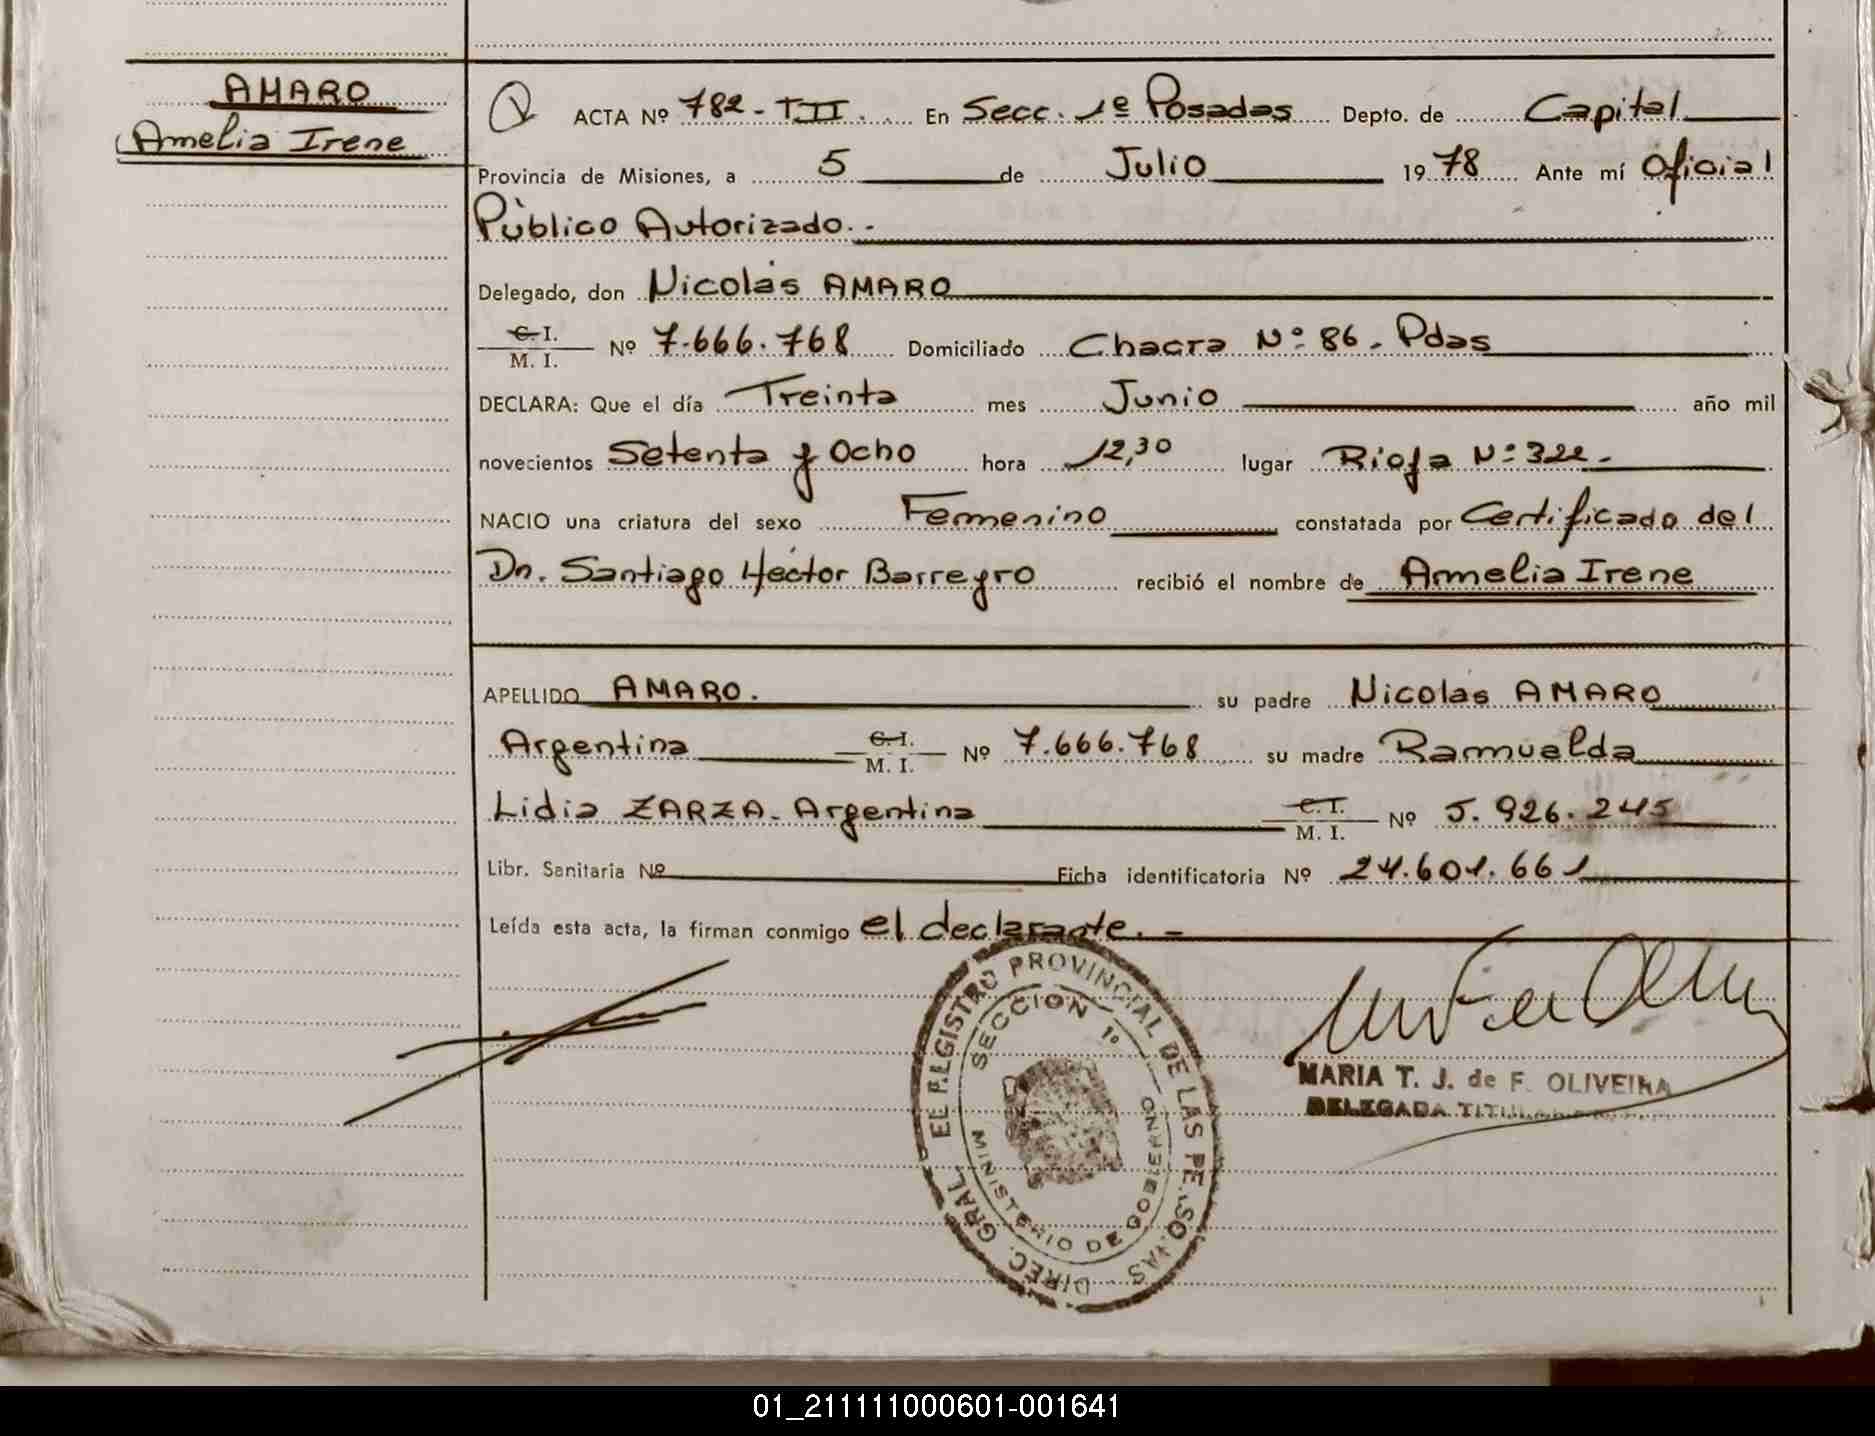 AMARO
Amelia Irene
ACTA Nº 782-TII. En Secc. 1º Posadas Depto. de Capital
Provincia de Misiones, a 5 de Julio 1978 Ante mí Oficial
Público Autorizado.-
Delegado, don Nicolás AMARO
C. I.
M. I. Nº 7.666.768 Domiciliado Chacra Nº 86. Pdas
DECLARA: Que el día Treinta mes Junio año mil
novecientos Setenta y Ocho hora 12,30 lugar Rioja Nº 322.
NACIO una criatura del sexo Femenino constatada por Certificado del
Dn. Santiago Héctor Barreyro recibió el nombre de Amelia Irene
APELLIDO AMARO. su padre Nicolás AMARO
Argentina C. I.
M. I. Nº 7.666.768 su madre Ramualda
Lidia ZARZA. Argentina C. I.
M. I. Nº 5.926.245
Libr. Sanitaria Nº Ficha identificatoria Nº 24.601.661
Leída esta acta, la firman conmigo el declarante.-
DIREC. GRAL. REGISTRO PROVINCIAL DE LAS PERSONAS
SECCION 1º
MINISTERIO DE GOBIERNO
MARIA T. J. de F. OLIVEIRA
DELEGADA TITULAR
01_211111000601-001641